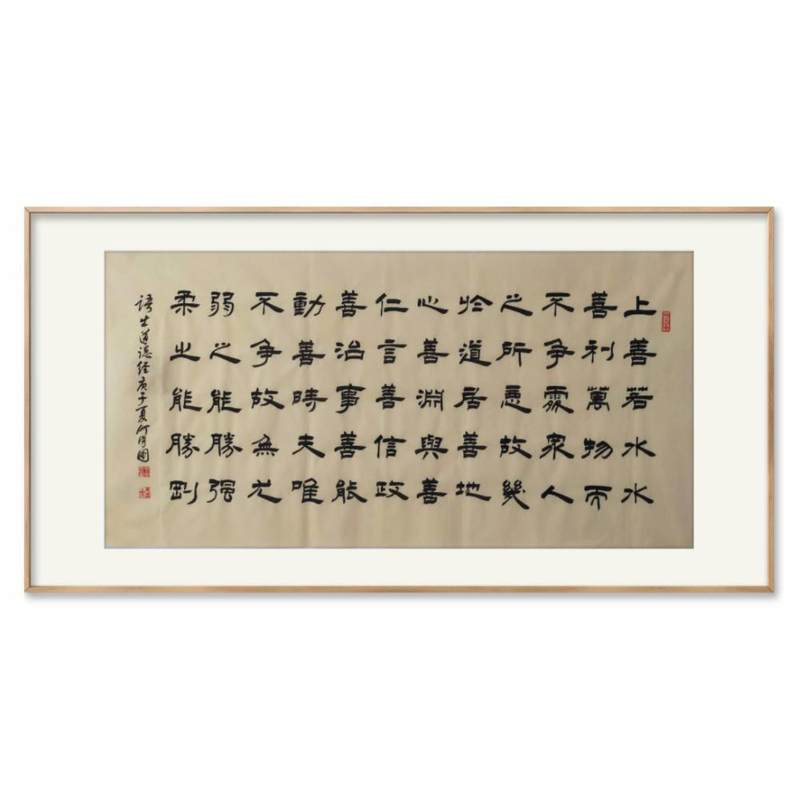 上善若水水
善利萬物而
不争處衆人
之所惡故幾
於道居善地
心善淵與善
仁言善信政
善治事善能
動善時夫唯
不争故無尤
弱之能勝强
柔之能勝剛
語出道德经庚子夏